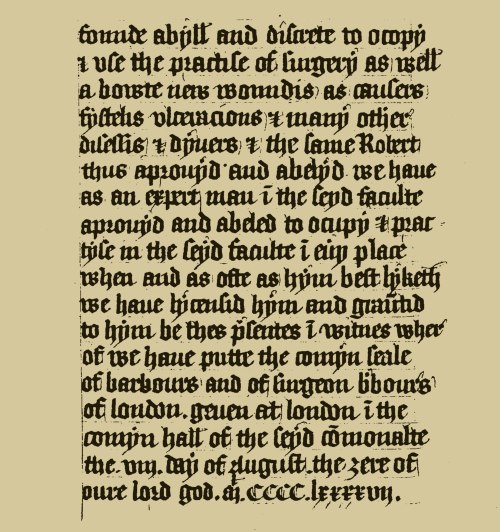 founde abyll and discrete to ocopy
& vse the practise of surgery as well
a bowte new woundis as causers
fystelis vlceracions & many other
disessis & dyuers & the same Robert
thus aprouyd and abelyd we haue
as an expert man ī the seyd faculte
aprouyd and abeled to ocupy & prac
tyse in the seyd faculte ī eūy place
when and as ofte as hym best lyketh
we haue lycensid hym and graūtid
to hym be thes p̄sentes ī witnes wher
of we haue putte the comyn seale
of barbours and of surgeon b̄bours
of london. geuen at london ī the
comyn hall of the seyd cōmonalte
the. viij. day of August. the zere of
oure lord god. CCCC. lxxxxvij.